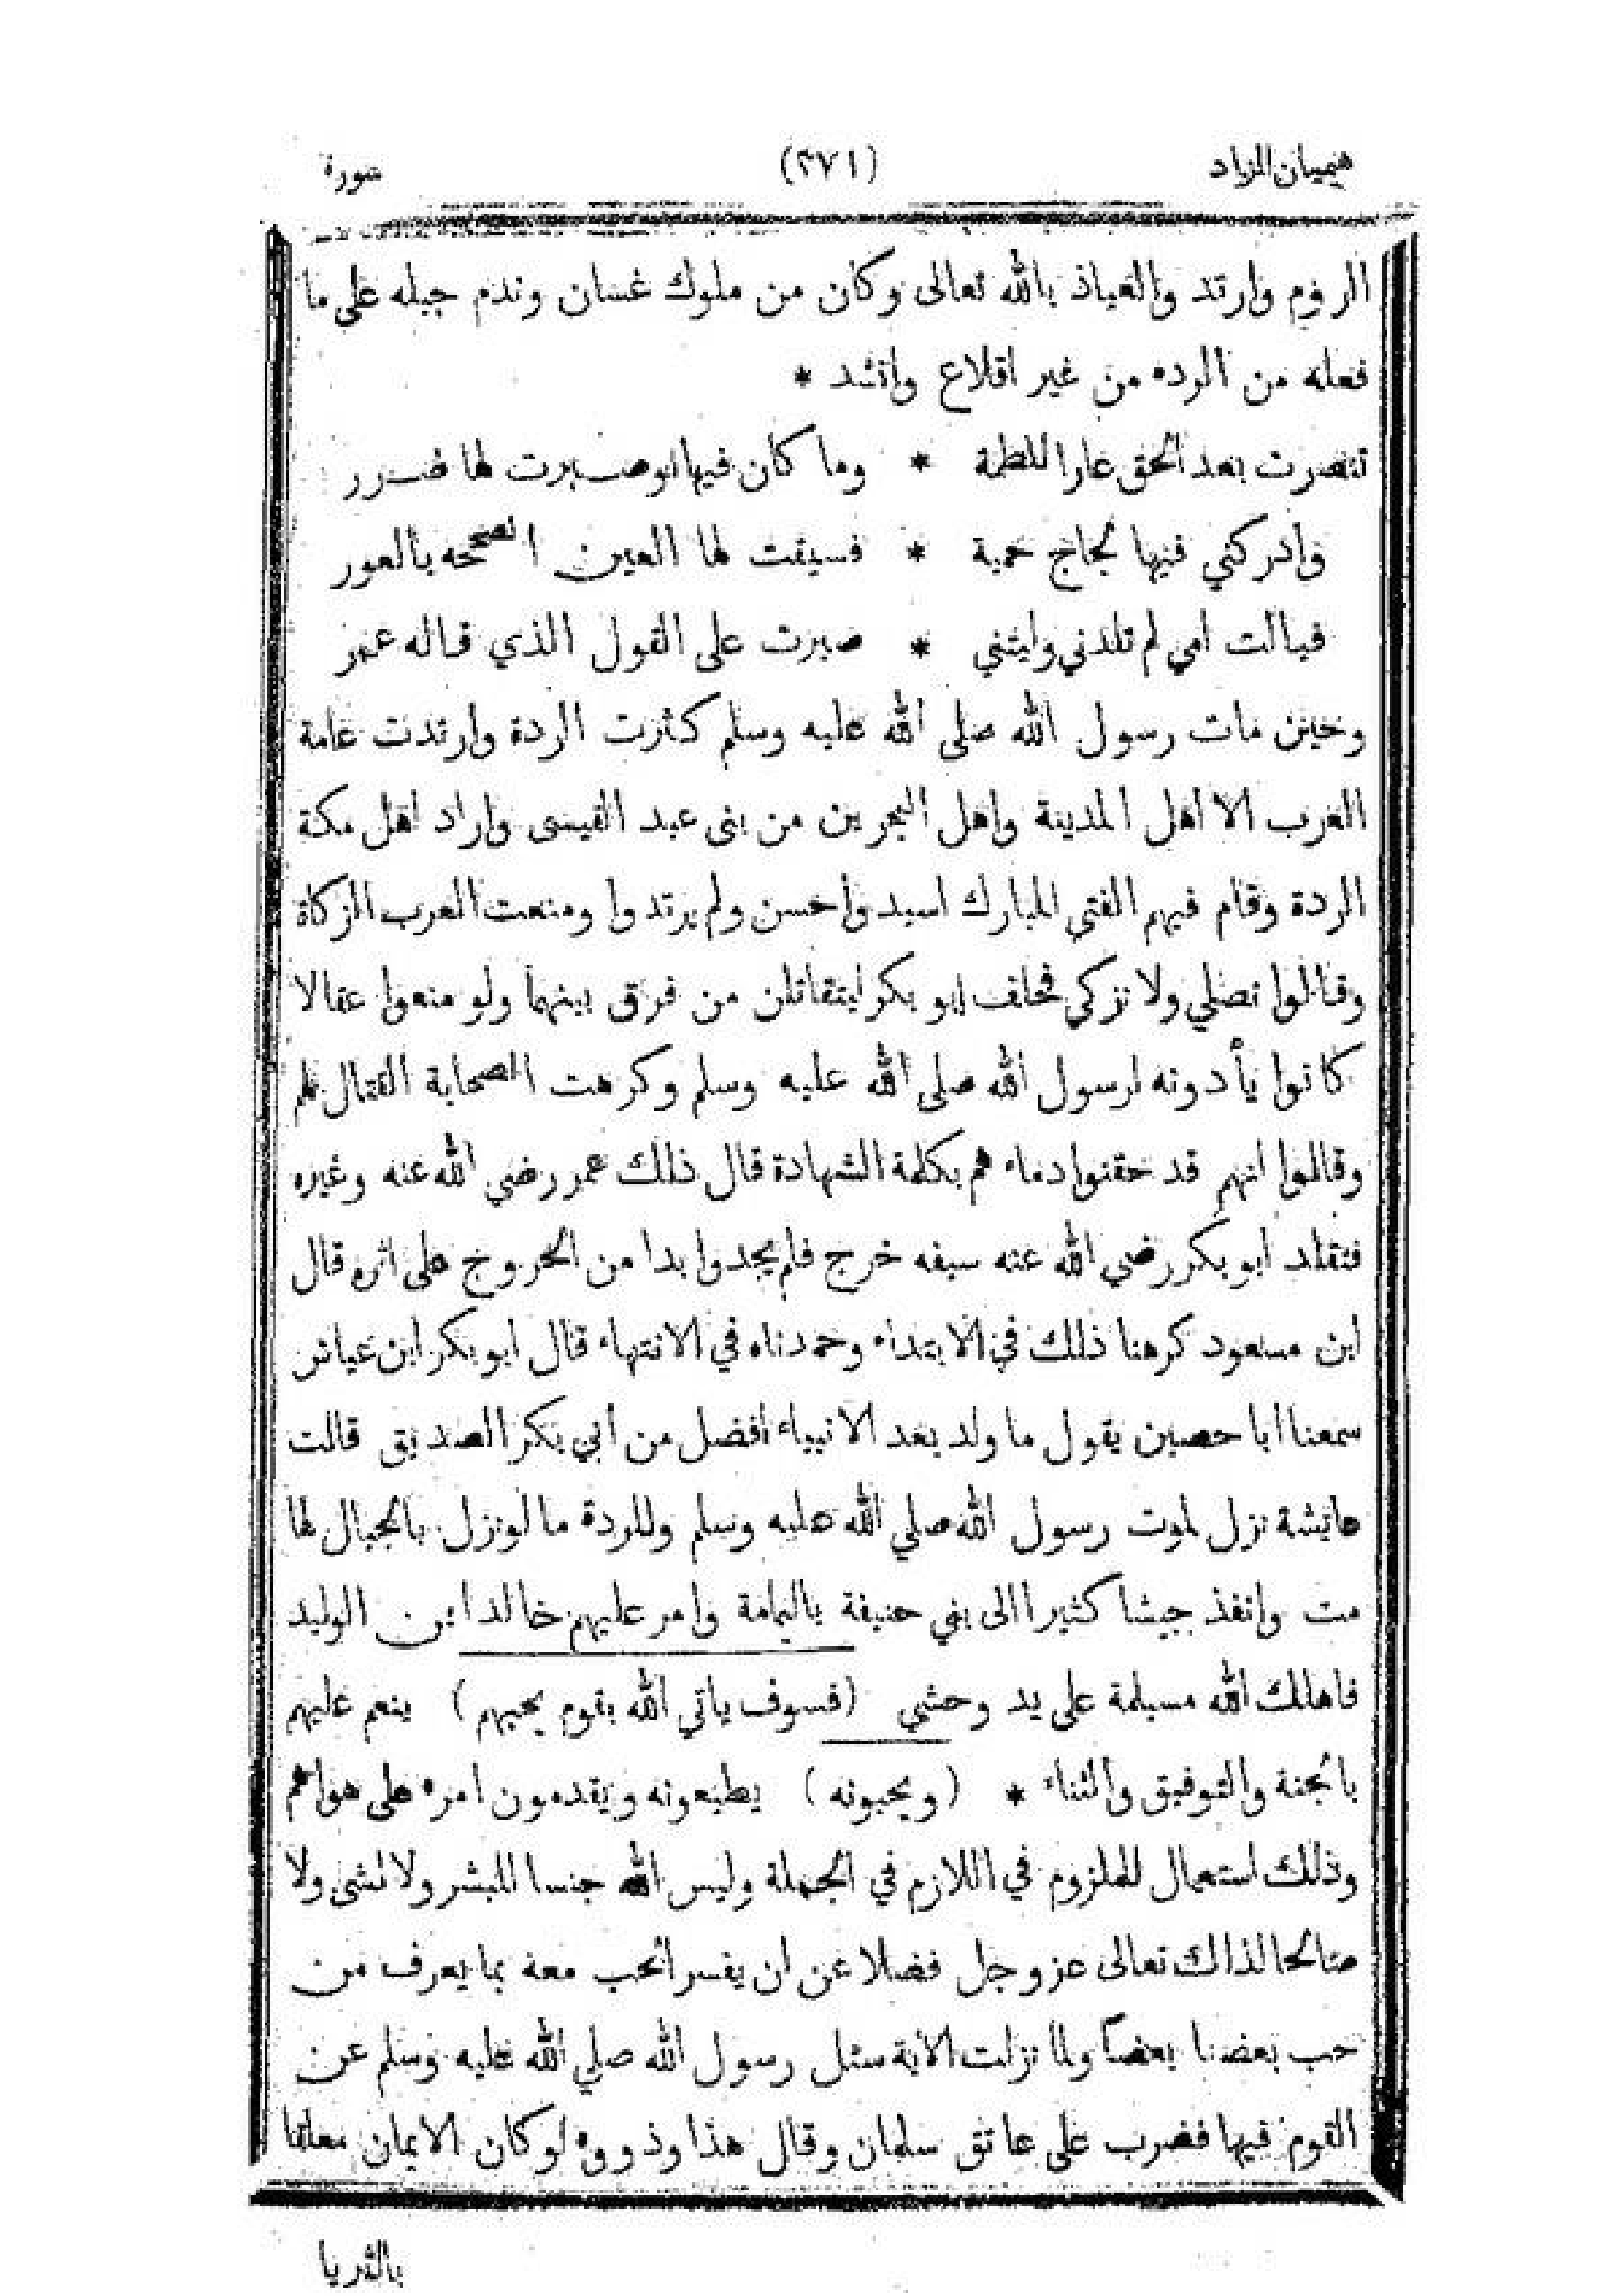 هيميان الزاد (٣٧١) سورة
الروم وارتد والعياذ بالله تعالى وكان من ملوك غسان وندم جبله على ما
فعله من الرده من غير اقلاع وانشد *
تنصرت بعد الحق عارا للطمة * وما كان فيها لو صبرت لها ضرر
وادركني فيها لجاج حمية * فسيقت لها العين الصحيحه بالعور
فياليت امي لم تلدني وليتني * صبرت على القول الذي قاله عمر
وحين مات رسول الله صلى الله عليه وسلم كثرت الردة وارتدت عامة
العرب الا اهل المدينة واهل البحرين من بنى عبد القيس واراد اهل مكة
الردة وقام فيهم الفتى المبارك اسيد وأحسن ولم يرتدوا ومنعت العرب الزكاة
وقالوا نصلي ولا نزكي فحلف ابو بكر ليتقاتلن من فرق بينهما ولو منعوا عقالا
كانوا يأدونه لرسول الله صلى الله عليه وسلم وكرهت الصحابة القتال لهم
وقالوا انهم قد حقنوا دماءهم بكلمة الشهادة قال ذلك عمر رضي الله عنه وغيره
فتقلد ابو بكر رضي الله عنه سيفه خرج فلم يجدوا بدا من الخروج على اثره قال
ابن مسعود كرهنا ذلك في الابتداء وحمدناه في الانتهاء قال ابو بكر ابن عياش
سمعنا ابا حصين يقول ما ولد بعد الانبياء افضل من أبي بكر الصديق قالت
عايشة نزل لموت رسول الله صلي الله عليه وسلم وللردة ما لو نزل بالجبال لها
مت وانفذ جيشا كثيرا الى بني حنيفة باليمامة وامر عليهم خالد ابن الوليد
فاهلك الله مسيلمة على يد وحشي (فسوف ياتي الله بقوم يحبهم) ينعم عليهم
بالجنة والتوفيق والثناء * (ويحبونه) يطيعونه ويقدمون امره على هواهم
وذلك استعمال للملزوم في اللازم في الجملة وليس الله جنسا للبشر ولا لشئ ولا
صالحا لذاك تعالى عز وجل فضلا عن ان يفسر الحب معه بما يعرف من
حب بعضنا بعضا ولما نزلت الآية سئل رسول الله صلي الله عليه وسلم عن
القوم فيها فضرب على عاتق سلمان وقال هذا وذووه لو كان الايمان معلقا
بالثريا